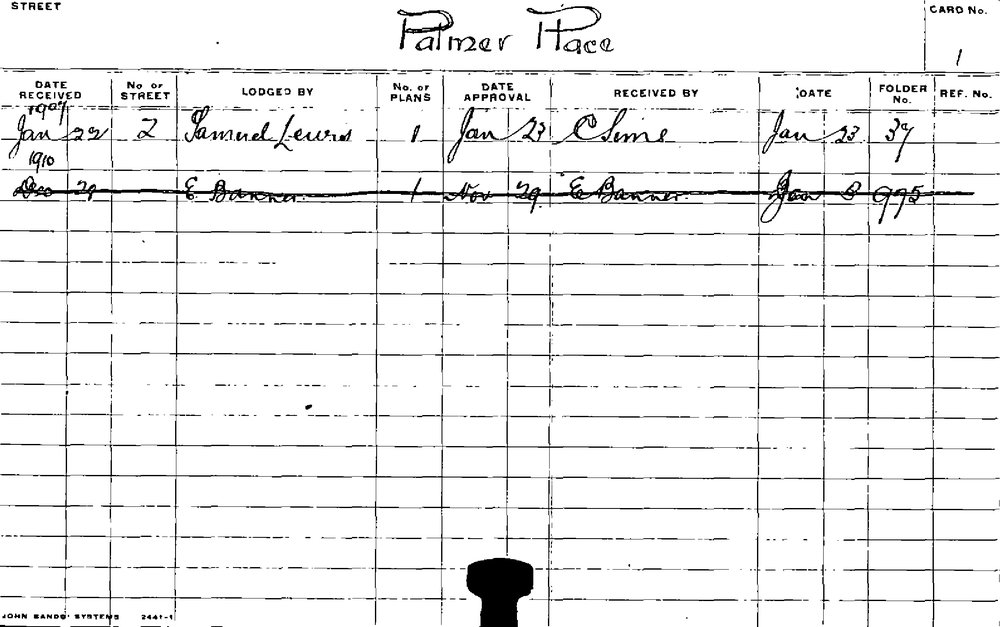 STREET Palmer Place CARD No. 1
DATE RECEIVED No OF STREET LODGED BY No. OF PLANS DATE APPROVAL RECEIVED BY DATE FOLDER No. REF. No.
1909
Jan 22 2 Samuel Lewis 1 Jan 23 C Sims Jan 23 39
1910
Dec 29 E. Banner 1 Nov 29 E Banner Jan 3 995
JOHN SANDS' SYSTEMS 2441-1